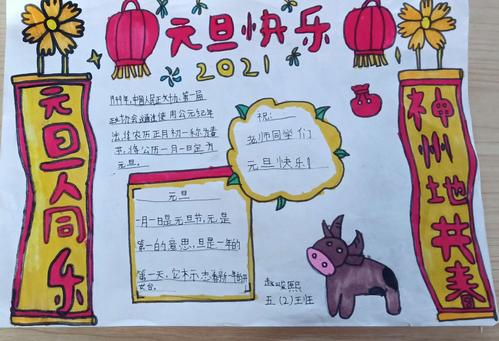 元旦快乐
2021
元旦人同乐
神州地共春
1949年,中国人民政协第一届
政协会议通过使用公元纪年
法,将农历正月初一称为春
节,将公历一月一日定为
元旦。
祝:
老师同学们
元旦快乐!
元旦
一月一日是元旦节,元是
第一的意思,旦是一年的
第一天,它标志着新年的开
五.(2)王班